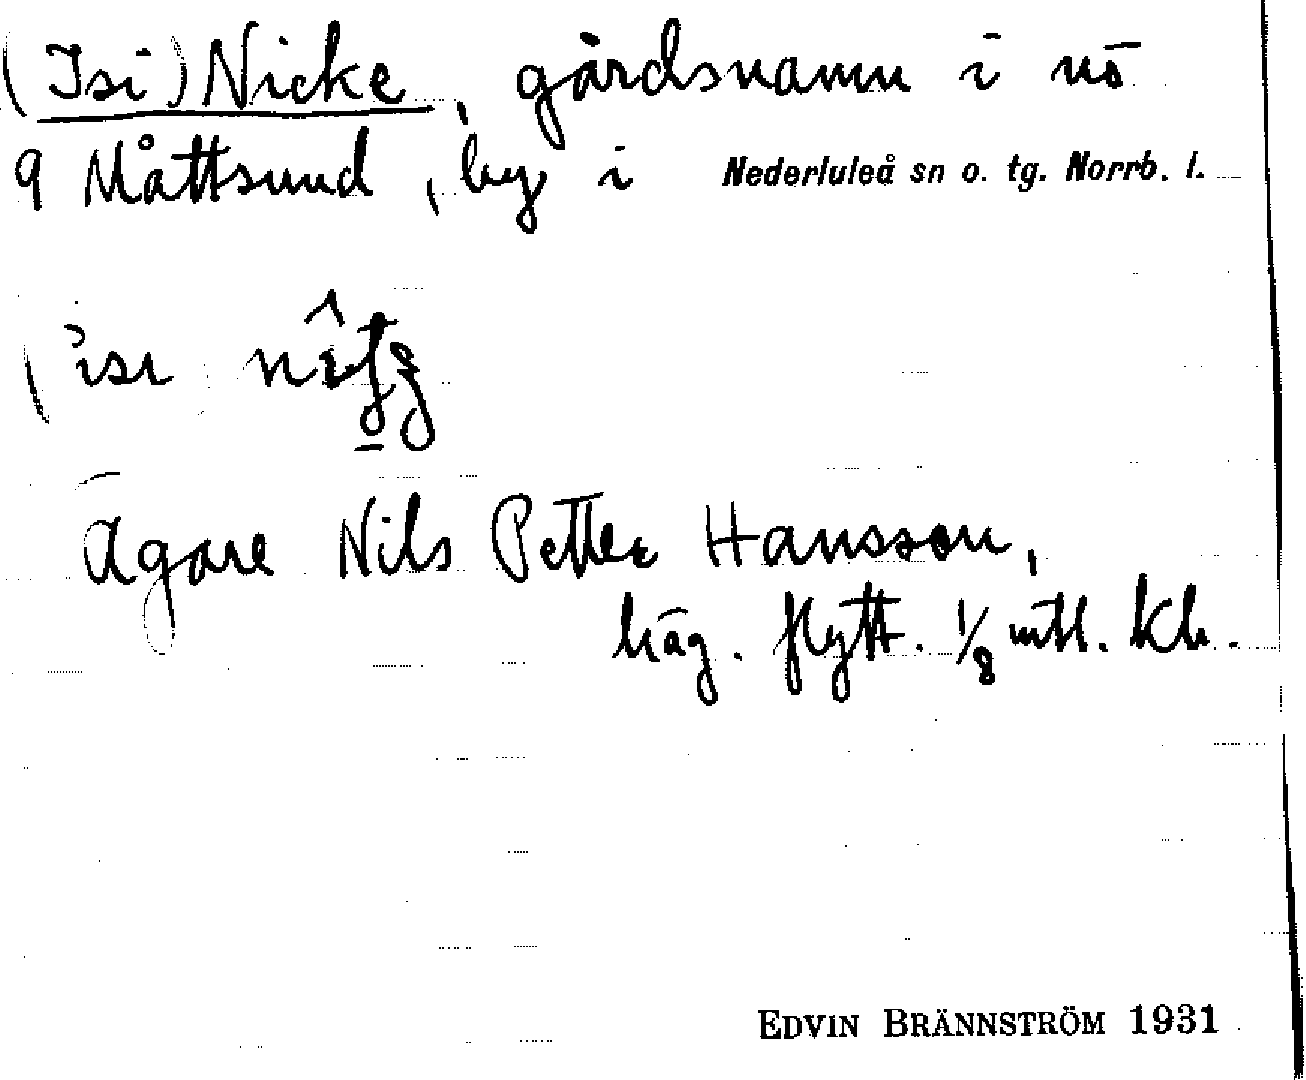 (Isi) Nicke, gårdsnamn i nö
9 Måttsund, by i Nederluleå sn o. tg. Norrb. l.
Ägare Nils Petter Hansson,
häg. flytt. 1/8 mtl. Kh.
EDVIN BRÄNNSTRÖM 1931